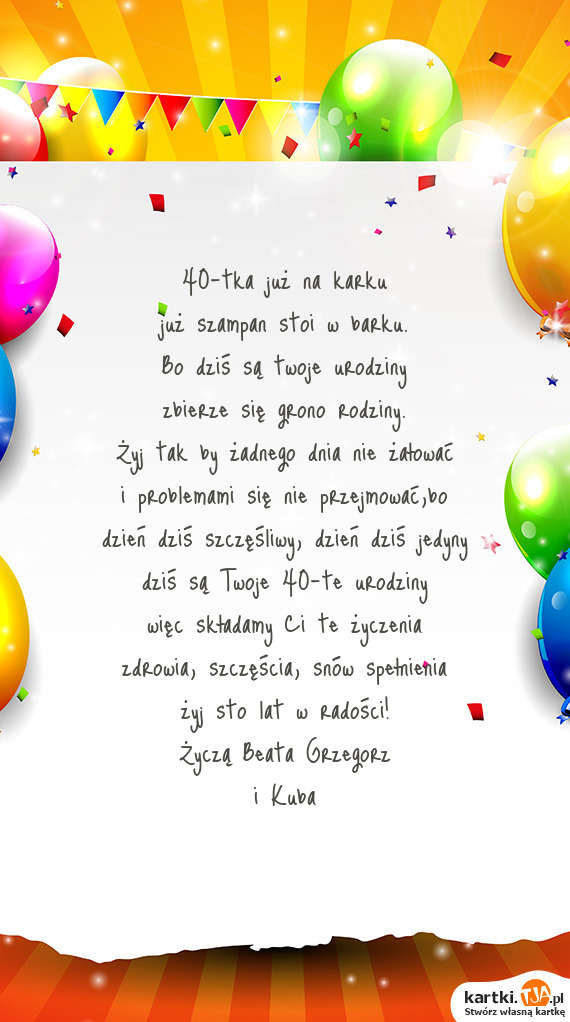 40-tka już na karku
już szampan stoi w barku.
Bo dziś są twoje urodziny
zbierze się grono rodziny.
Żyj tak by żadnego dnia nie żałować
i problemami się nie przejmować,bo
dzień dziś szczęśliwy, dzień dziś jedyny
dziś są Twoje 40-te urodziny
więc składamy Ci te życzenia
zdrowia, szczęścia, snów spełnienia
żyj sto lat w radości!
Życzą Beata Grzegorz
i Kuba
kartki.TJA.pl
Stwórz własną kartkę